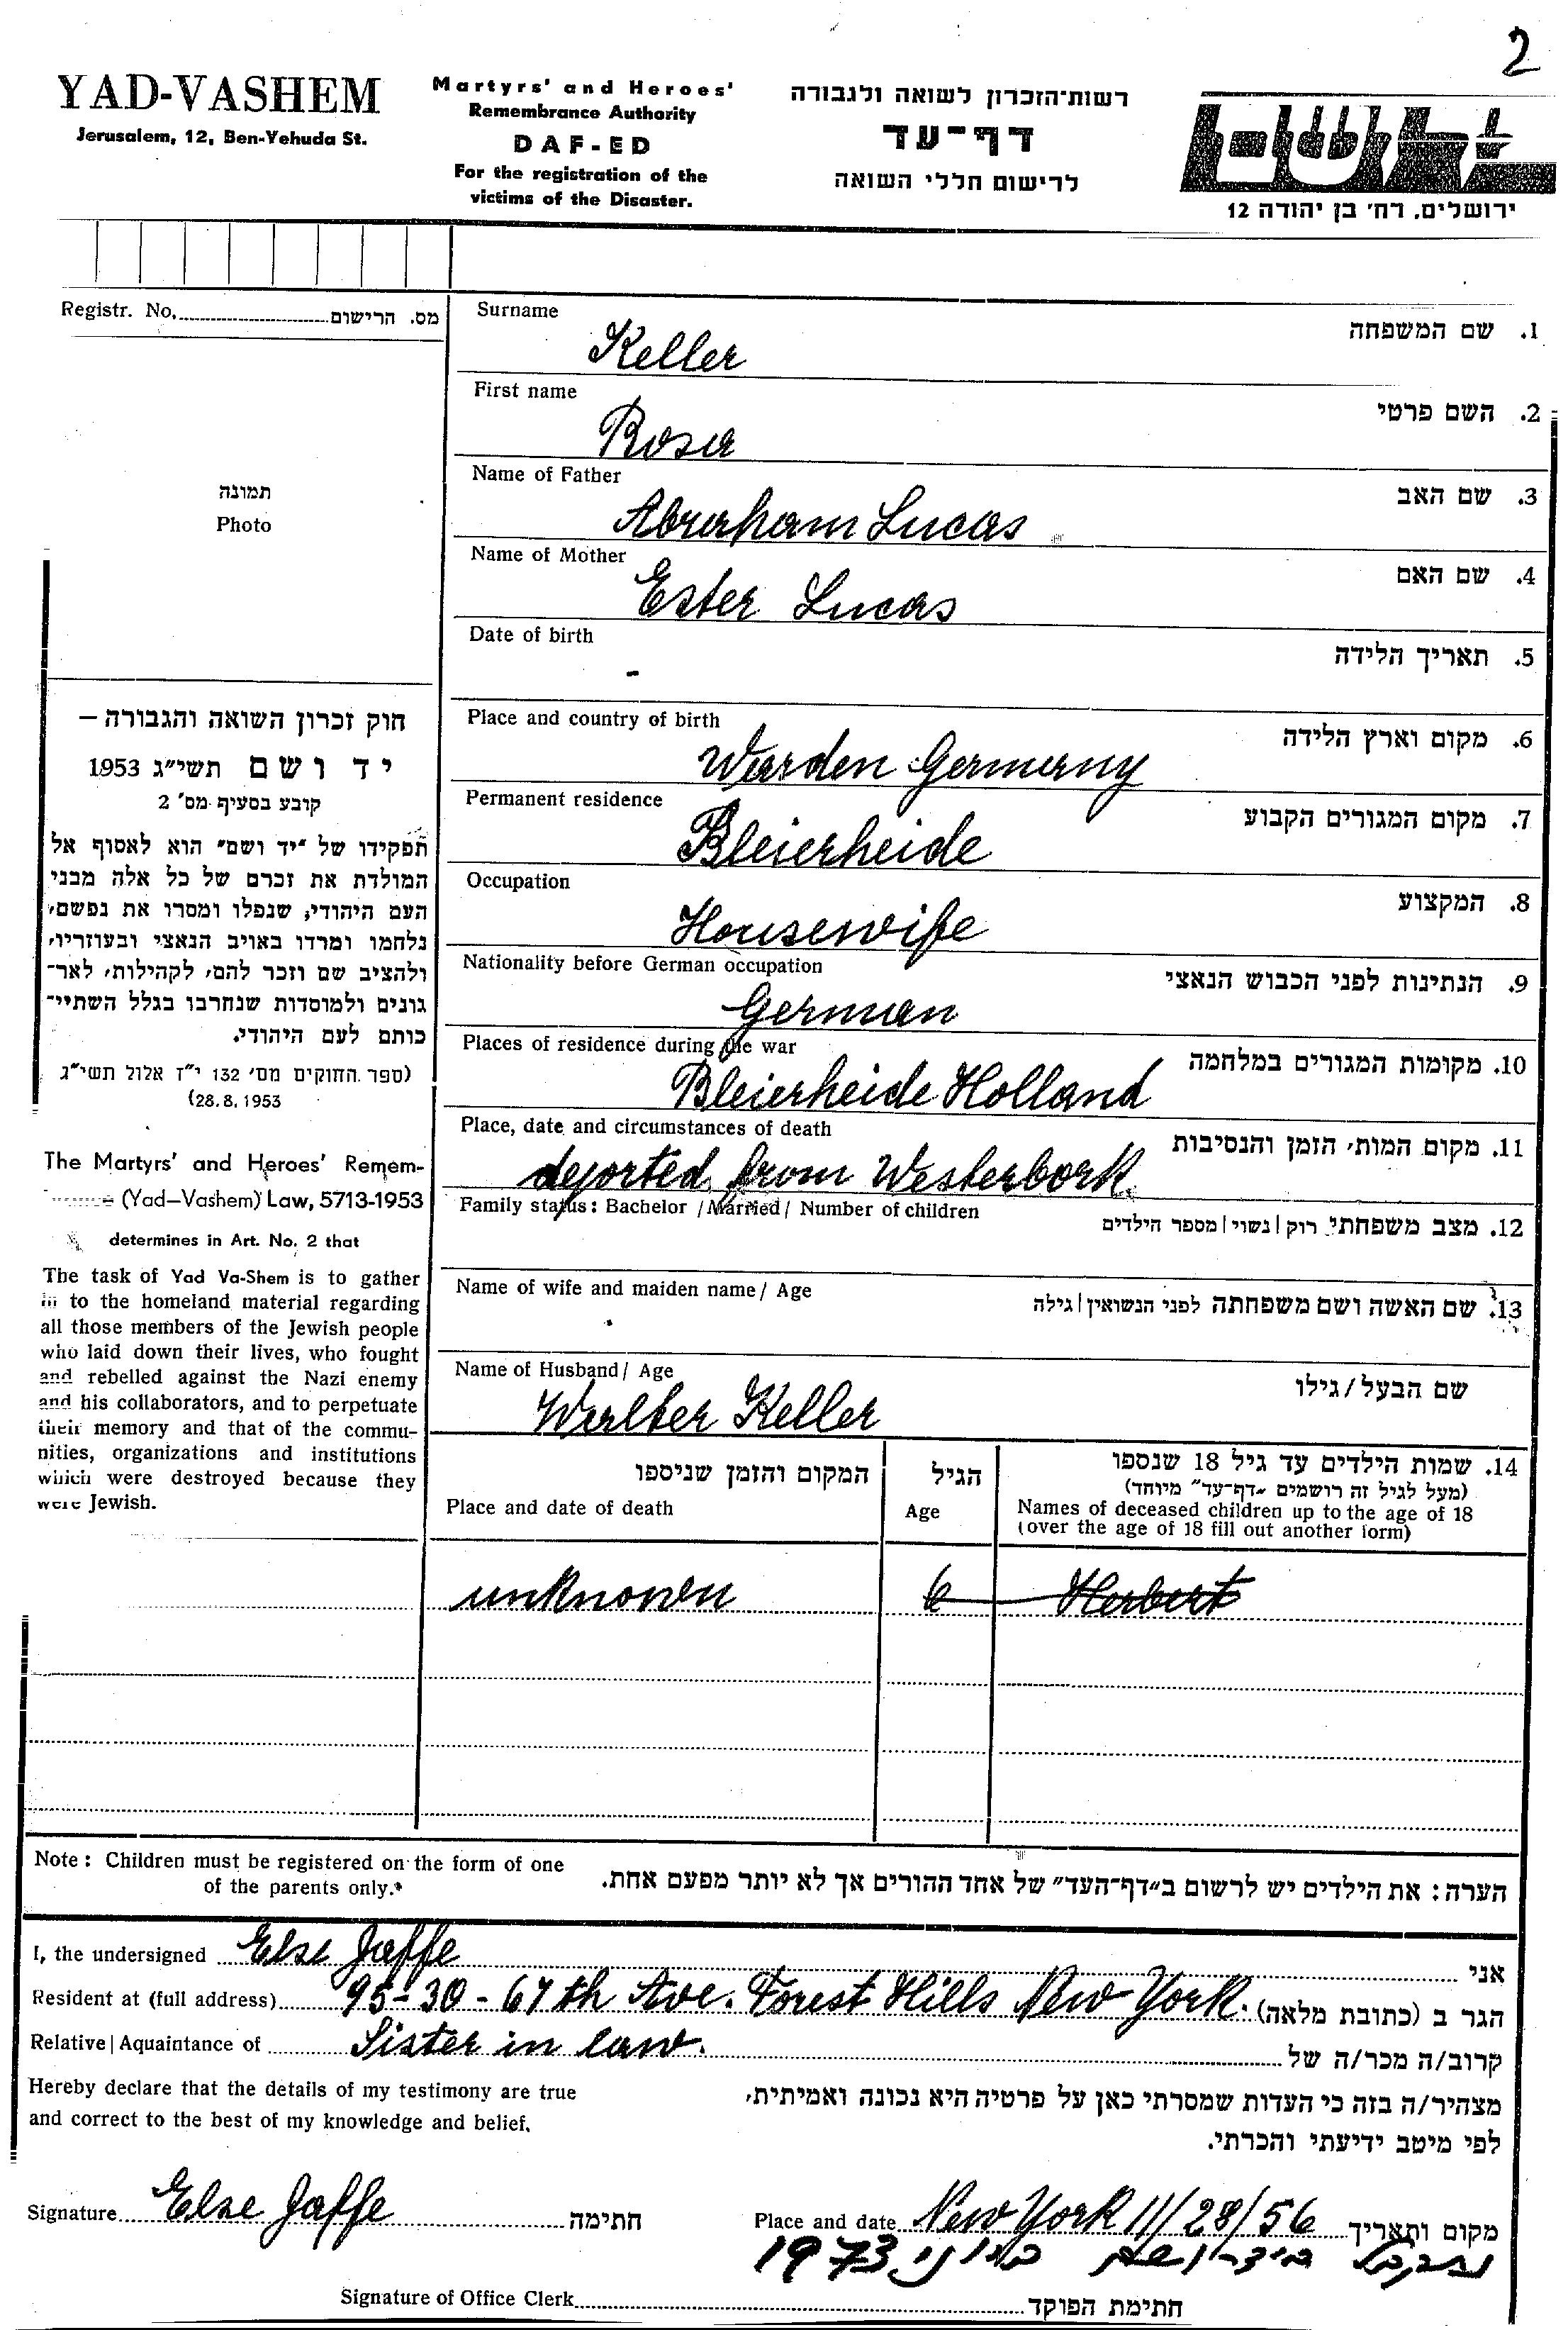 2
YAD-VASHEM
Jerusalem, 12, Ben-Yehuda St.
Martyrs' and Heroes'
Remembrance Authority
DAF-ED
For the registration of the
victims of the Disaster.
רשות־הזכרון לשואה ולגבורה
דף־עד
לרישום חללי השואה
יד ושם
ירושלים, רח' בן יהודה 12
Registr. No. מס. הרישום
תמונה
Photo
חוק זכרון השואה והגבורה –
יד ושם תשי"ג 1953
קובע בסעיף מס' 2
תפקידו של "יד ושם" הוא לאסוף אל
המולדת את זכרם של כל אלה מבני
העם היהודי, שנפלו ומסרו את נפשם,
נלחמו ומרדו באויב הנאצי ובעוזריו,
ולהציב שם וזכר להם, לקהילות, לאר־
גונים ולמוסדות שנחרבו בגלל השתיי־
כותם לעם היהודי.
(ספר החוקים מס' 132 י"ז אלול תשי"ג
(28.8.1953
The Martyrs' and Heroes' Remem-
(Yad–Vashem) Law, 5713-1953
determines in Art. No. 2 that
The task of Yad Va-Shem is to gather
in to the homeland material regarding
all those members of the Jewish people
who laid down their lives, who fought
and rebelled against the Nazi enemy
and his collaborators, and to perpetuate
their memory and that of the commu-
nities, organizations and institutions
which were destroyed because they
were Jewish.
Surname 1. שם המשפחה
Keller
First name 2. השם פרטי
Rosa
Name of Father 3. שם האב
Abraham Lucas
Name of Mother 4. שם האם
Ester Lucas
Date of birth 5. תאריך הלידה
-
Place and country of birth 6. מקום וארץ הלידה
Warden Germany
Permanent residence 7. מקום המגורים הקבוע
Bleierheide
Occupation 8. המקצוע
Housewife
Nationality before German occupation 9. הנתינות לפני הכבוש הנאצי
German
Places of residence during the war 10. מקומות המגורים במלחמה
Bleierheide Holland
Place, date and circumstances of death 11. מקום המות, הזמן והנסיבות
deported from Westerbork
Family status: Bachelor / Married / Number of children 12. מצב משפחתי רוק | נשוי | מספר הילדים
Name of wife and maiden name / Age 13. שם האשה ושם משפחתה לפני הנשואין | גילה
Name of Husband / Age שם הבעל / גילו
Walter Keller
המקום והזמן שניספו הגיל 14. שמות הילדים עד גיל 18 שנספו
(מעל לגיל זה רושמים "דף־עד" מיוחד)
Place and date of death Age Names of deceased children up to the age of 18
(over the age of 18 fill out another form)
unknown 6 Herbert
Note: Children must be registered on the form of one
of the parents only.
הערה: את הילדים יש לרשום ב"דף־העד" של אחד ההורים אך לא יותר מפעם אחת.
I, the undersigned Else Jaffe אני
Resident at (full address) 95-30-67th Ave. Forest Hills New York. הגר ב (כתובת מלאה)
Relative | Aquaintance of Sister in law. קרוב/ה מכר/ה של
Hereby declare that the details of my testimony are true
and correct to the best of my knowledge and belief.
מצהיר/ה בזה כי העדות שמסרתי כאן על פרטיה היא נכונה ואמיתית,
לפי מיטב ידיעתי והכרתי.
Signature Else Jaffe חתימה
Place and date New York 11/28/56 מקום ותאריך
נתקבל ביד-ושם ביוני 1973
Signature of Office Clerk חתימת הפוקד